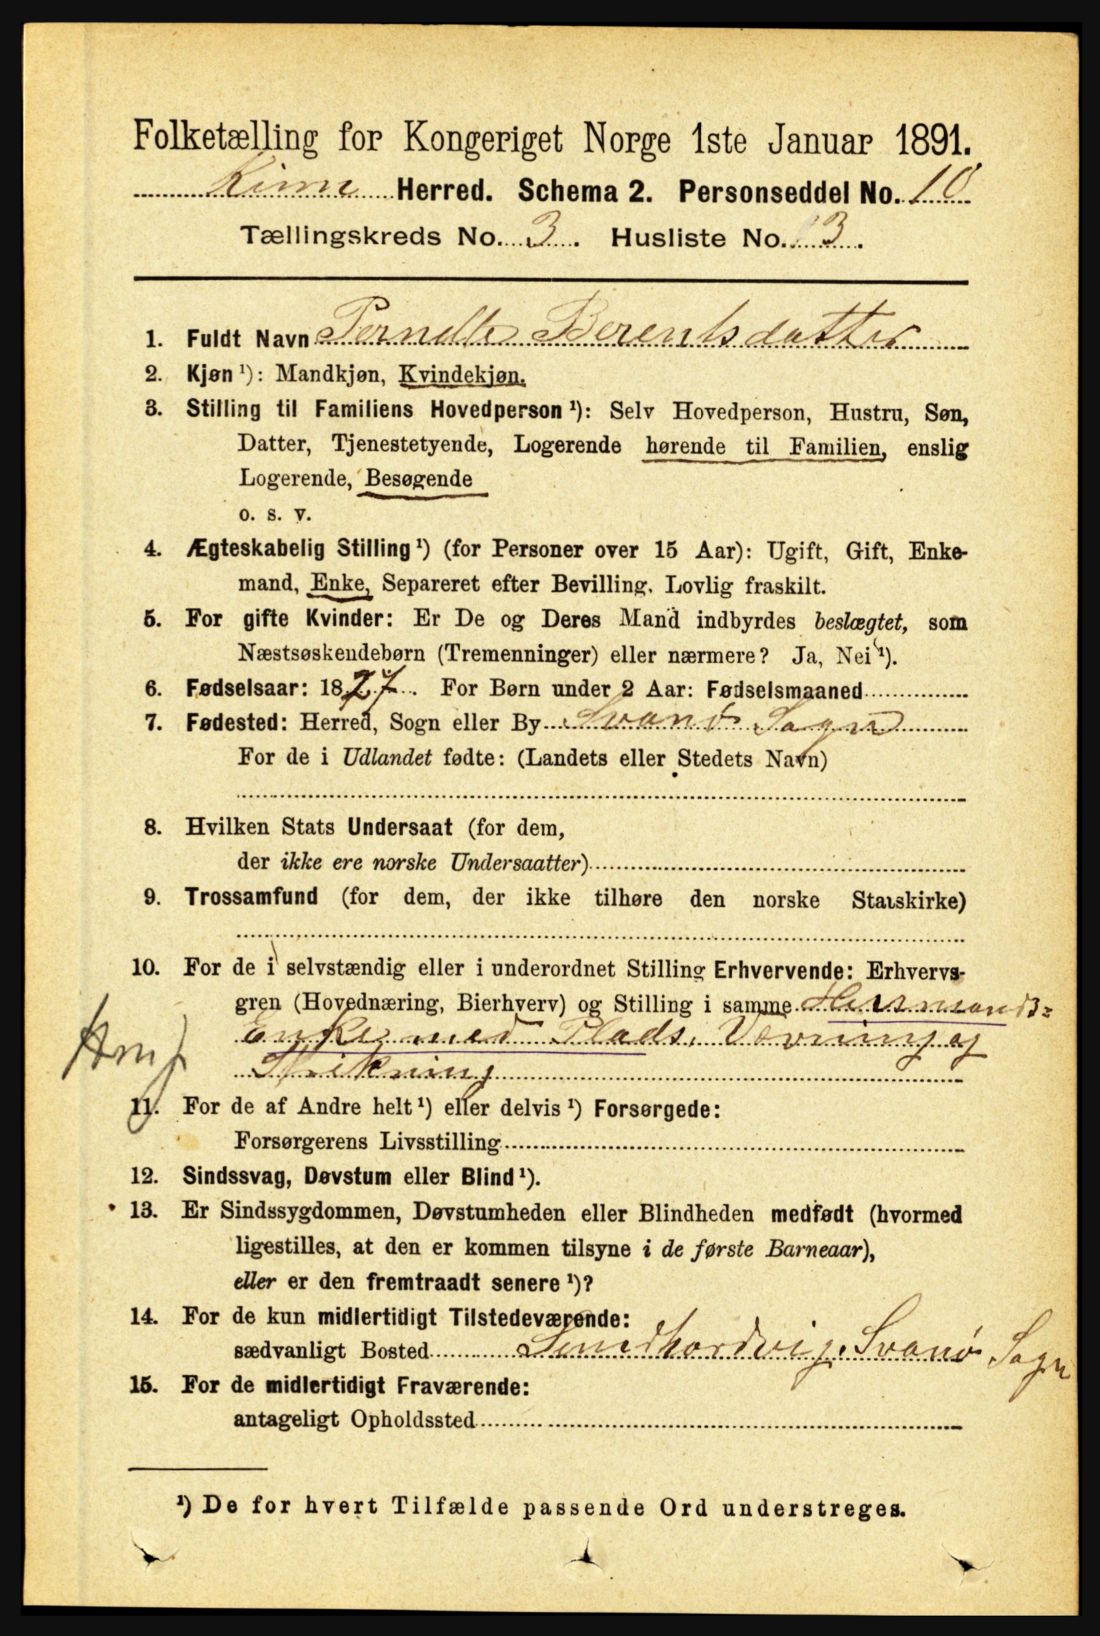 Folketælling for Kongeriget Norge 1ste Januar 1891.
Kinn Herred. Schema 2. Personseddel No. 10
Tællingskreds No. 3. Husliste No. 13.
1. Fuldt Navn Pernelle Berentsdatter
2. Kjøn ¹): Mandkjøn, Kvindekjøn.
3. Stilling til Familiens Hovedperson ¹): Selv Hovedperson, Hustru, Søn,
Datter, Tjenestetyende, Logerende hørende til Familien, enslig
Logerende, Besøgende
o. s. v.
4. Ægteskabelig Stilling ¹) (for Personer over 15 Aar): Ugift, Gift, Enke-
mand, Enke, Separeret efter Bevilling. Lovlig fraskilt.
5. For gifte Kvinder: Er De og Deres Mand indbyrdes beslægtet, som
Næstsøskendebørn (Tremenninger) eller nærmere? Ja, Nei ¹).
6. Fødselsaar: 1827. For Børn under 2 Aar: Fødselsmaaned
7. Fødested: Herred, Sogn eller By Svanø Sogn
For de i Udlandet fødte: (Landets eller Stedets Navn)
8. Hvilken Stats Undersaat (for dem,
der ikke ere norske Undersaatter)
9. Trossamfund (for dem, der ikke tilhøre den norske Statskirke)
10. For de i selvstændig eller i underordnet Stilling Erhvervende: Erhvervs-
gren (Hovednæring, Bierhverv) og Stilling i samme Husmands=
Enke med Plads. Vævning og
Strikning
11. For de af Andre helt ¹) eller delvis ¹) Forsørgede:
Forsørgerens Livsstilling
12. Sindssvag, Døvstum eller Blind ¹).
13. Er Sindssygdommen, Døvstumheden eller Blindheden medfødt (hvormed
ligestilles, at den er kommen tilsyne i de første Barneaar),
eller er den fremtraadt senere ¹)?
14. For de kun midlertidigt Tilstedeværende:
sædvanligt Bosted Sundhordvig, Svanø Sogn
15. For de midlertidigt Fraværende:
antageligt Opholdssted
¹) De for hvert Tilfælde passende Ord understreges.